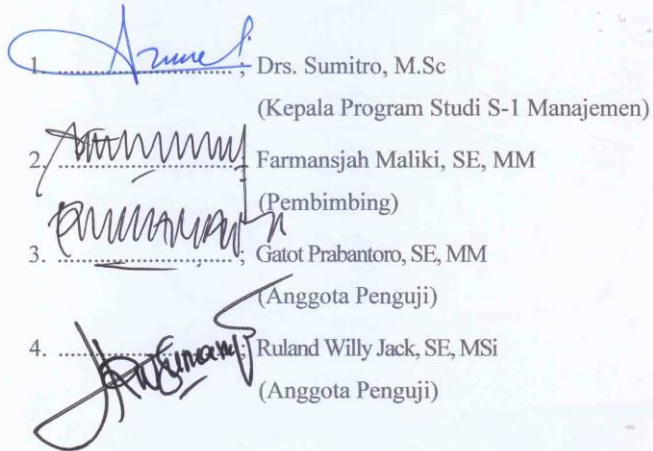 1. .............................. ; Drs. Sumitro, M.Sc
(Kepala Program Studi S-1 Manajemen)
2. .............................. ; Farmansjah Maliki, SE, MM
(Pembimbing)
3. .............................. ; Gatot Prabantoro, SE, MM
(Anggota Penguji)
4. .............................. ; Ruland Willy Jack, SE, MSi
(Anggota Penguji)